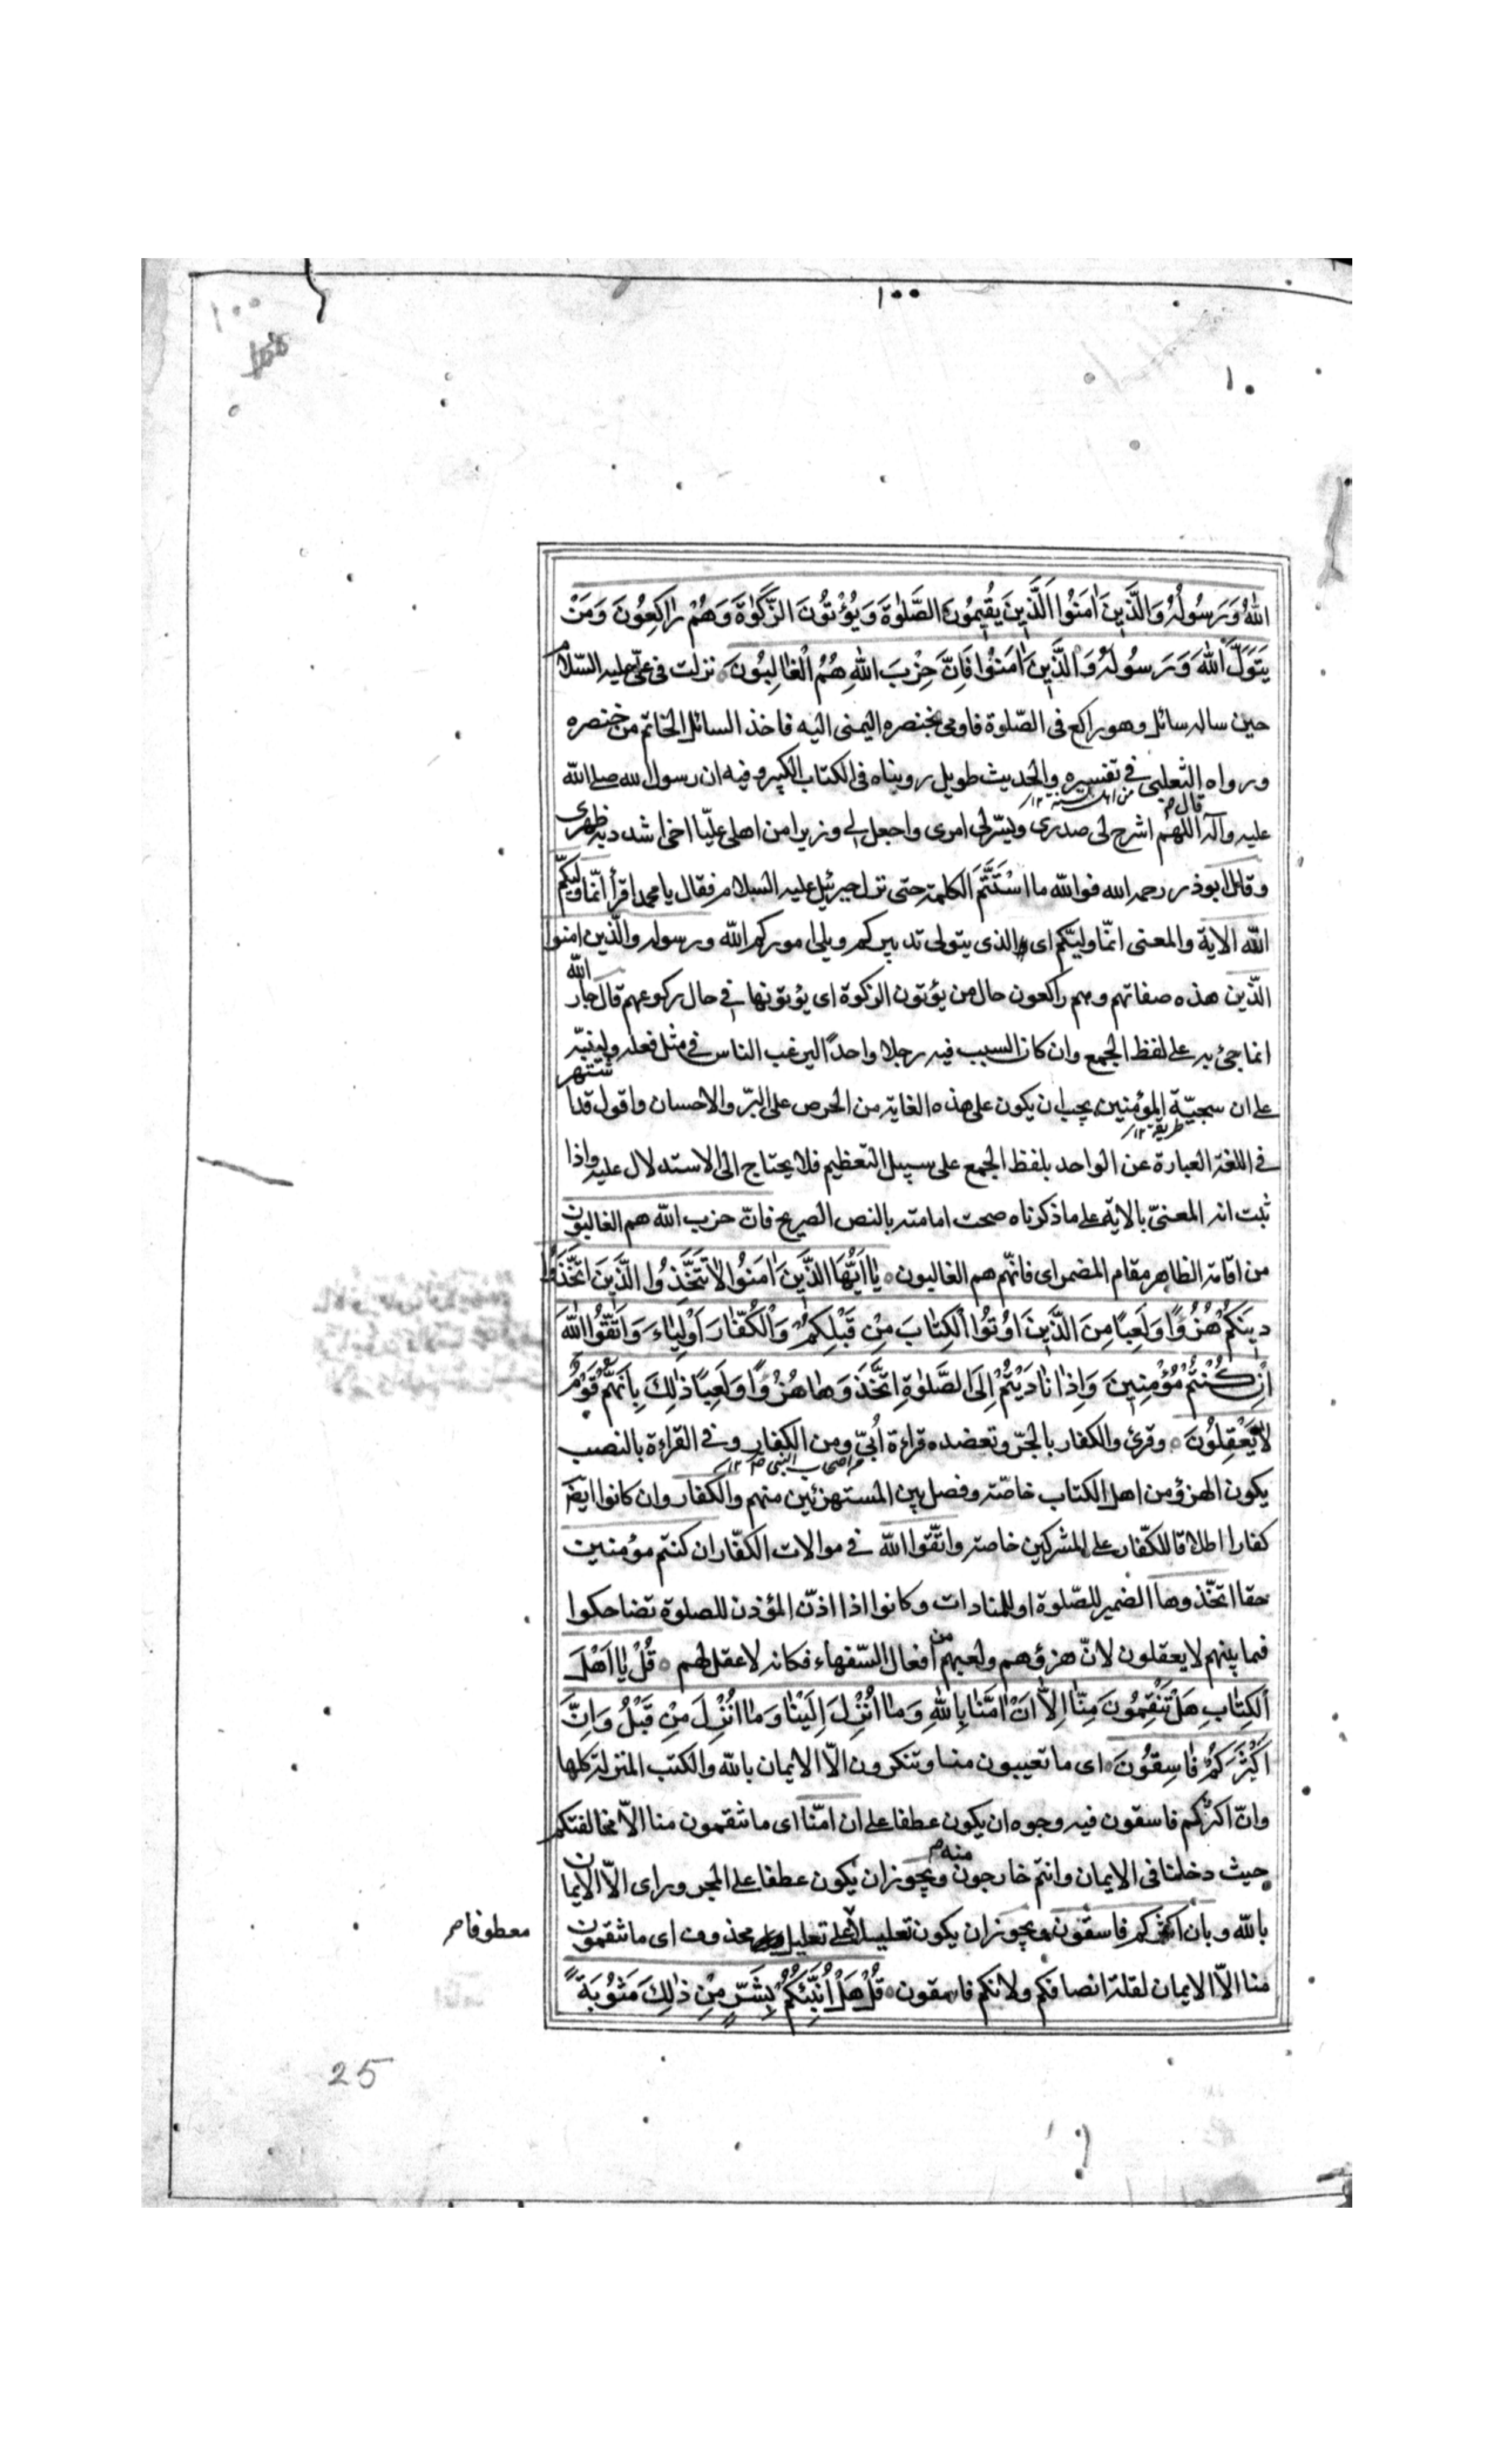 ١٠٠
١٠٠
١٠
اللّٰهُ وَرَسُولُهُ وَالَّذِينَ اٰمَنُوا الَّذِينَ يُقِيمُونَ الصَّلٰوةَ وَيُؤْتُونَ الزَّكٰوةَ وَهُمْ رٰاكِعُونَ وَمَنْ
يَتَوَلَّ اللّٰهَ وَرَسُولَهُ وَالَّذِينَ اٰمَنُوا فَاِنَّ حِزْبَ اللّٰهِ هُمُ الْغٰالِبُونَ نزلت فى علىّ عليه السّلام
حين ساله سائل وهو راكع فى الصّلوة فاومى بخنصره اليمنى اليه فاخذ السائل الخاتم من خنصره
ورواه الثعلبى فى تفسيره والحديث طويل رويناه فى الكتاب الكبير وفيه ان رسول الله صلى اللّه
قال
عليه وآله اللهمّ اشرح لى صدرى ويسّر لى امرى واجعل لى وزيرا من اهلى عليّا اخى اشدد به ظهرى
وقال ابوذر رحمه الله فواللّه ما اسْتَتَمَّ الكلمة حتى نزل جبرئيل عليه السلام فقال يا محمد اقرأ انّما وليّكم
اللّه الاية والمعنى انّما وليّكم اى الذى يتولى تدبيركم ويلى اموركم اللّه ورسوله والّذين امنوا
الّذين هذه صفاتهم وهم راكعون حال من يؤتون الزكوة اى يؤتونها فى حال ركوعهم قال جار اللّه
انما جئ به على لفظ الجمع وان كان السبب فيه رجلا واحدًا ليرغب الناس فى مثل فعله ولينبّه
على ان سجيّة المؤمنين يجب ان يكون على هذه الغاية من الحرص على البرّ والاحسان واقول قد اشتهر
طريقة ١٢
فى اللغة العبارة عن الواحد بلفظ الجمع على سبيل التعظيم فلا يحتاج الى الاستدلال عليه واذا
ثبت انه المعنىّ بالاية على ما ذكرناه صحت امامته بالنص الصريح فانّ حزب اللّه هم الغالبون
من اقامة الظاهر مقام المضمر اى فانّهم هم الغالبون يٰا اَيُّهَا الَّذِينَ اٰمَنُوا لٰا تَتَّخِذُوا الَّذِينَ اتَّخَذُوا
دِينَكُمْ هُزُوًا وَلَعِبًا مِنَ الَّذِينَ اُوتُوا الْكِتٰابَ مِنْ قَبْلِكُمْ وَالْكُفّٰارَ اَوْلِيٰاءَ وَاتَّقُوا اللّٰهَ
اِنْ كُنْتُمْ مُؤْمِنِينَ وَاِذٰا نٰادَيْتُمْ اِلَى الصَّلٰوةِ اتَّخَذُوهٰا هُزُوًا وَلَعِبًا ذٰلِكَ بِاَنَّهُمْ قَوْمٌ
لٰا يَعْقِلُونَ وقرئ والكفار بالجرّ وتعضده قراءة اُبىّ ومن الكفار وفى القراءة بالنصب
يكون الهزؤ من اهل الكتاب خاصّة وفصل بين المستهزئين منهم والكفار وان كانوا ايضا
كفارا اطلاقا للكفّار على المشركين خاصة واتّقوا اللّه فى موالات الكفّار ان كنتم مؤمنين
حقا اتخّذوها الضمير للصّلوة او للمنادات وكانوا اذا اذّن المؤذن للصلوة تضاحكوا
فيما بينهم لا يعقلون لانّ هزؤهم ولعبهم من افعال السّفهاء فكانه لا عقل لهم قُلْ يٰا اَهْلَ
الْكِتٰابِ هَلْ تَنْقِمُونَ مِنّٰا اِلّٰا اَنْ اٰمَنّٰا بِاللّٰهِ وَمٰا اُنْزِلَ اِلَيْنٰا وَمٰا اُنْزِلَ مِنْ قَبْلُ وَاَنَّ
اَكْثَرَكُمْ فٰاسِقُونَ اى ما تعيبون منا وتنكرون الّا الايمان باللّه والكتب المنزلة كلها
وانّ اكثركم فاسقون فيه وجوه ان يكون عطفا على ان امنّا اى ما تنقمون منا الّا مخالفتكم
حيث دخلنا فى الايمان وانتم خارجون منه ويجوز ان يكون عطفا على المجرور اى الّا الايمان
باللّه وبان اكثركم فاسقون ويجوز ان يكون تعليلا على تعليل محذوف اى ما تنقمون
منا الّا الايمان لقلة انصافكم ولانكم فاسقون قُلْ هَلْ اُنَبِّئُكُمْ بِشَرٍّ مِنْ ذٰلِكَ مَثُوبَةً
25